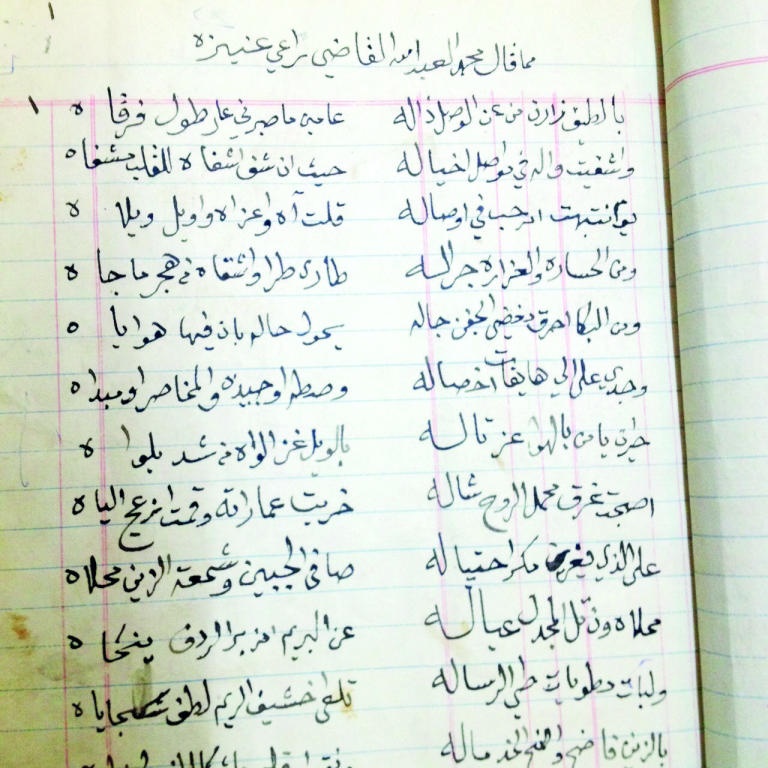 مما قال محمد العبدالله القاضي راعي عنيزه
بالطيف زارن من عن الوصل ذاله عامين ما صبري على طول فرقا ه
واشفيت واله في تواصل اخياله حيث ان شفي اشفاه للقلب مشفاه
يوم انتبهت ارحب في اوصاله قلت آه واعزاه واويل ويلا ه
ومن الحساره والعزاره جراله طاري طرا واشقاه في هجر ما جا ه
ومن البكا احرق بغضي الجفن جاله يحول حاله بان فيها هوايا ه
وجدي على الي هايفات اخصاله وصطه اوجيده والمخاصر او مبداه
حرت يا من بالهوا عز تاله بالويل عز الواه في شد بلوا ه
اصبحت غرق محمل الروح شاله خربت عماراته وقمت انزعج الياه
على الذي مكر احتياله صافي الجبين وشمعة الزين محلاه
محلاه ونثل المجدل عياله عن البريم امزبر الردف ينحا ه
ولبات مطويات طي الرساله تلقى خشيف الريم لطف سجايا ه
بالزين فاضح والخد ماله